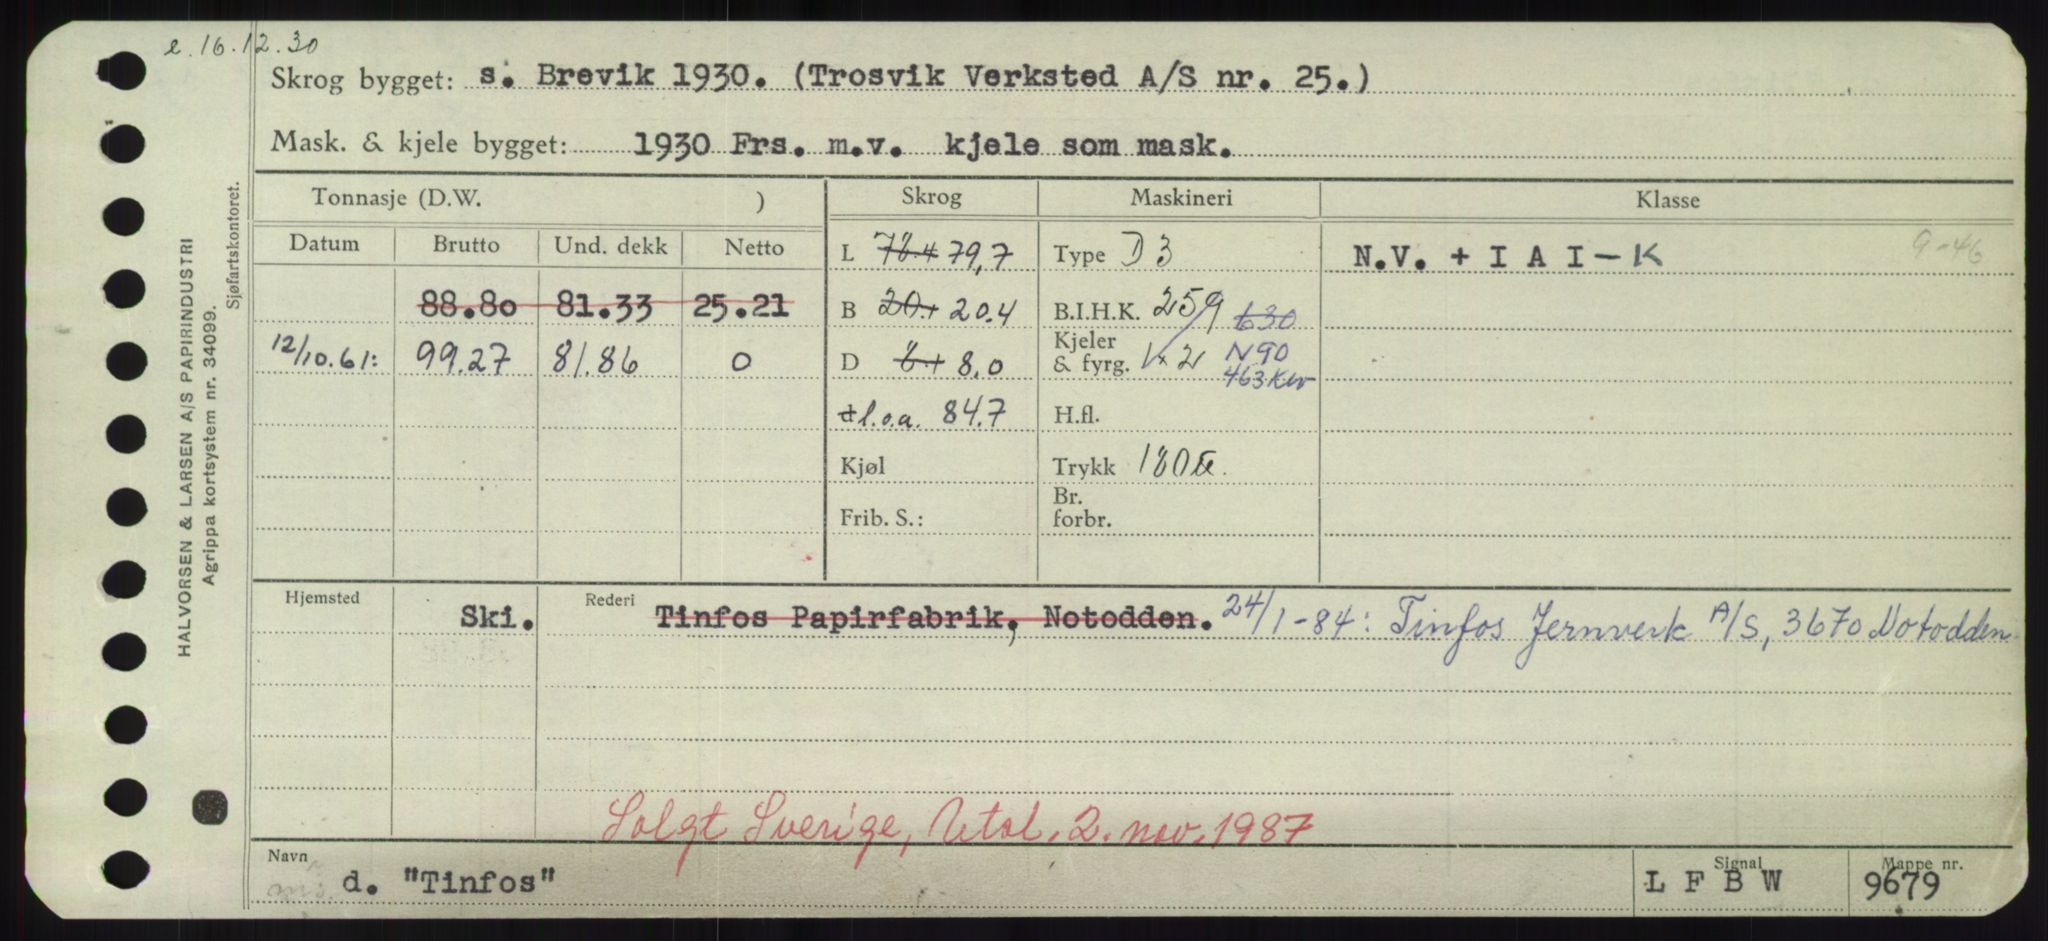 e. 16.12.30
Skrog bygget: s. Brevik 1930. (Trosvik Verksted A/S nr. 25.)
Mask. & kjele bygget: 1930 Frs. m.v. kjele som mask.
Tonnasje (D.W. ) Skrog Maskineri Klasse
Datum Brutto Und. dekk Netto
L 78.4 79,7 Type D 3 N.V. + I A I - K 9-46
88.80 81.33 25.21 B 20.1 20.4 B.I.H.K. 259 630
12/10.61: 99.27 81.86 0 D 8.1 8.0 Kjeler & fyrg. 1 x 2 N 90
463 KW
d l.o.a. 84.7 H.fl.
Kjøl Trykk 180
Frib. S.: Br. forbr.
Hjemsted Ski. Rederi Tinfos Papirfabrik, Notodden. 24/1-84: Tinfos Jernverk A/S, 3670 Notodden
Solgt Sverige, Utsl. 2. nov. 1987
Navn Signal Mappe nr.
ms. d. "Tinfos" L F B W 9679
HALVORSEN & LARSEN A/S PAPIRINDUSTRI
Agrippa kortsystem nr. 34099.
Sjøfartskontoret.